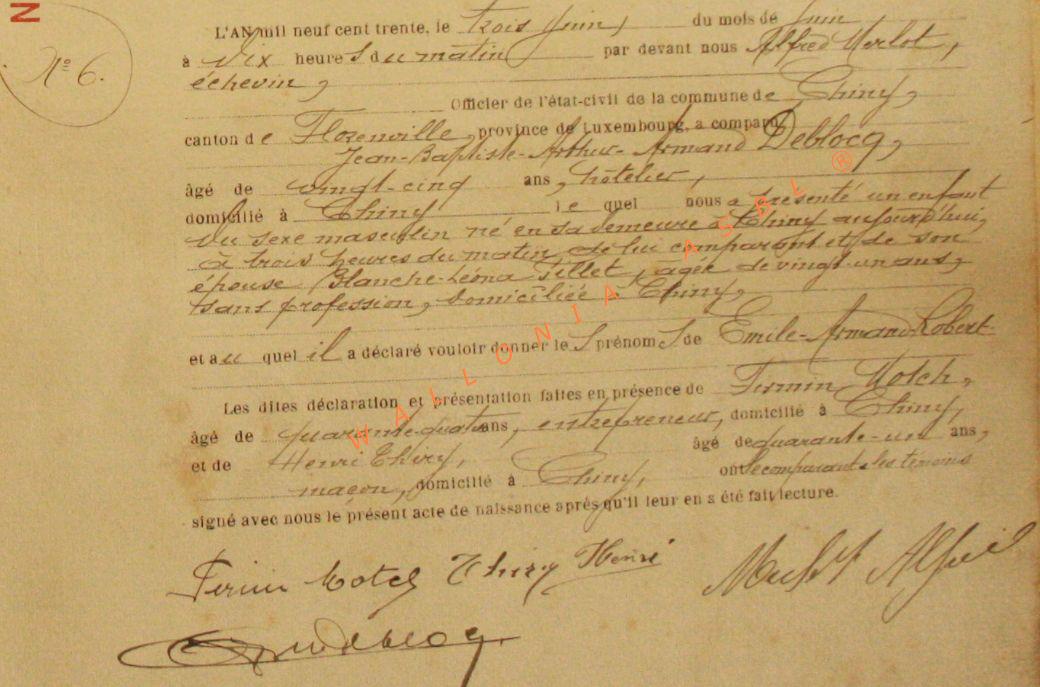 N
N° 6.
L'AN mil neuf cent trente, le trois Juin, du mois de Juin
à dix heure s du matin par devant nous Alfred Merlot,
échevin,
Officier de l'état-civil de la commune de Chiny,
canton de Florenville, province de Luxembourg, a comparu
Jean-Baptiste-Arthur-Armand Deblocq,
âgé de vingt-cinq ans, hôtelier,
domicilié à Chiny le quel nous a présenté un enfant
du sexe masculin né en sa demeure à Chiny aujourd'hui,
à trois heures du matin, de lui comparant et de son
épouse Blanche-Léona Pillet, âgée de vingt-un ans,
sans profession, domiciliée à Chiny,
et au quel il a déclaré vouloir donner les prénoms de Emile-Armand-Robert-
Les dites déclaration et présentation faites en présence de Firmin,
âgé de quarante-quatre ans, entrepreneur, domicilié à Chiny,
et de Henri Thiry, âgé de quarante-un ans,
maçon, domicilié à Chiny, ont le comparant & les témoins
signé avec nous le présent acte de naissance après qu'il leur en a été fait lecture.
Firmin Thiry Henri Alfred
Deblocq
WALLONIA ASBL ®